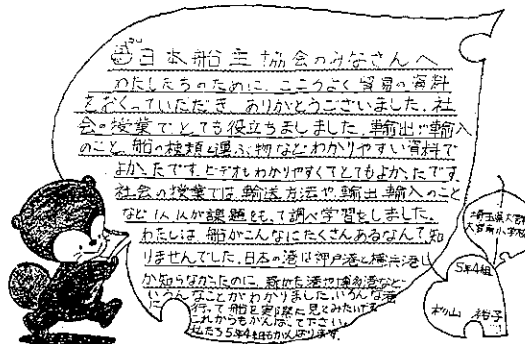 日本船主協会のみなさんへ
わたしたちのために、こころよく貿易の資料
をおくっていただき、ありがとうございました。社
会の授業でとても役立ちまし ました。輸出や輸入
のこと、船の種類と運ぶ物などわかりやすい資料で
よかったです。ビデオもわかりやすくてとてもよかったです。
社会の授業では、輸送方法や、輸出輸入のこと
など1人1人が課題をもって調べ学習をしました。
わたしは、船がこんなにたくさんあるなんて知
りませんでした。日本の港は神戸港と横浜港し
か知らなかったのに、
いろんなことがわかりました。いろんな港
に行って船を実際に見てみたいです。
これからもがんばって下さい。
私たち5年4組もがんばります。
埼玉県大宮市
大宮南小学校
5年4組
杉山 裕子